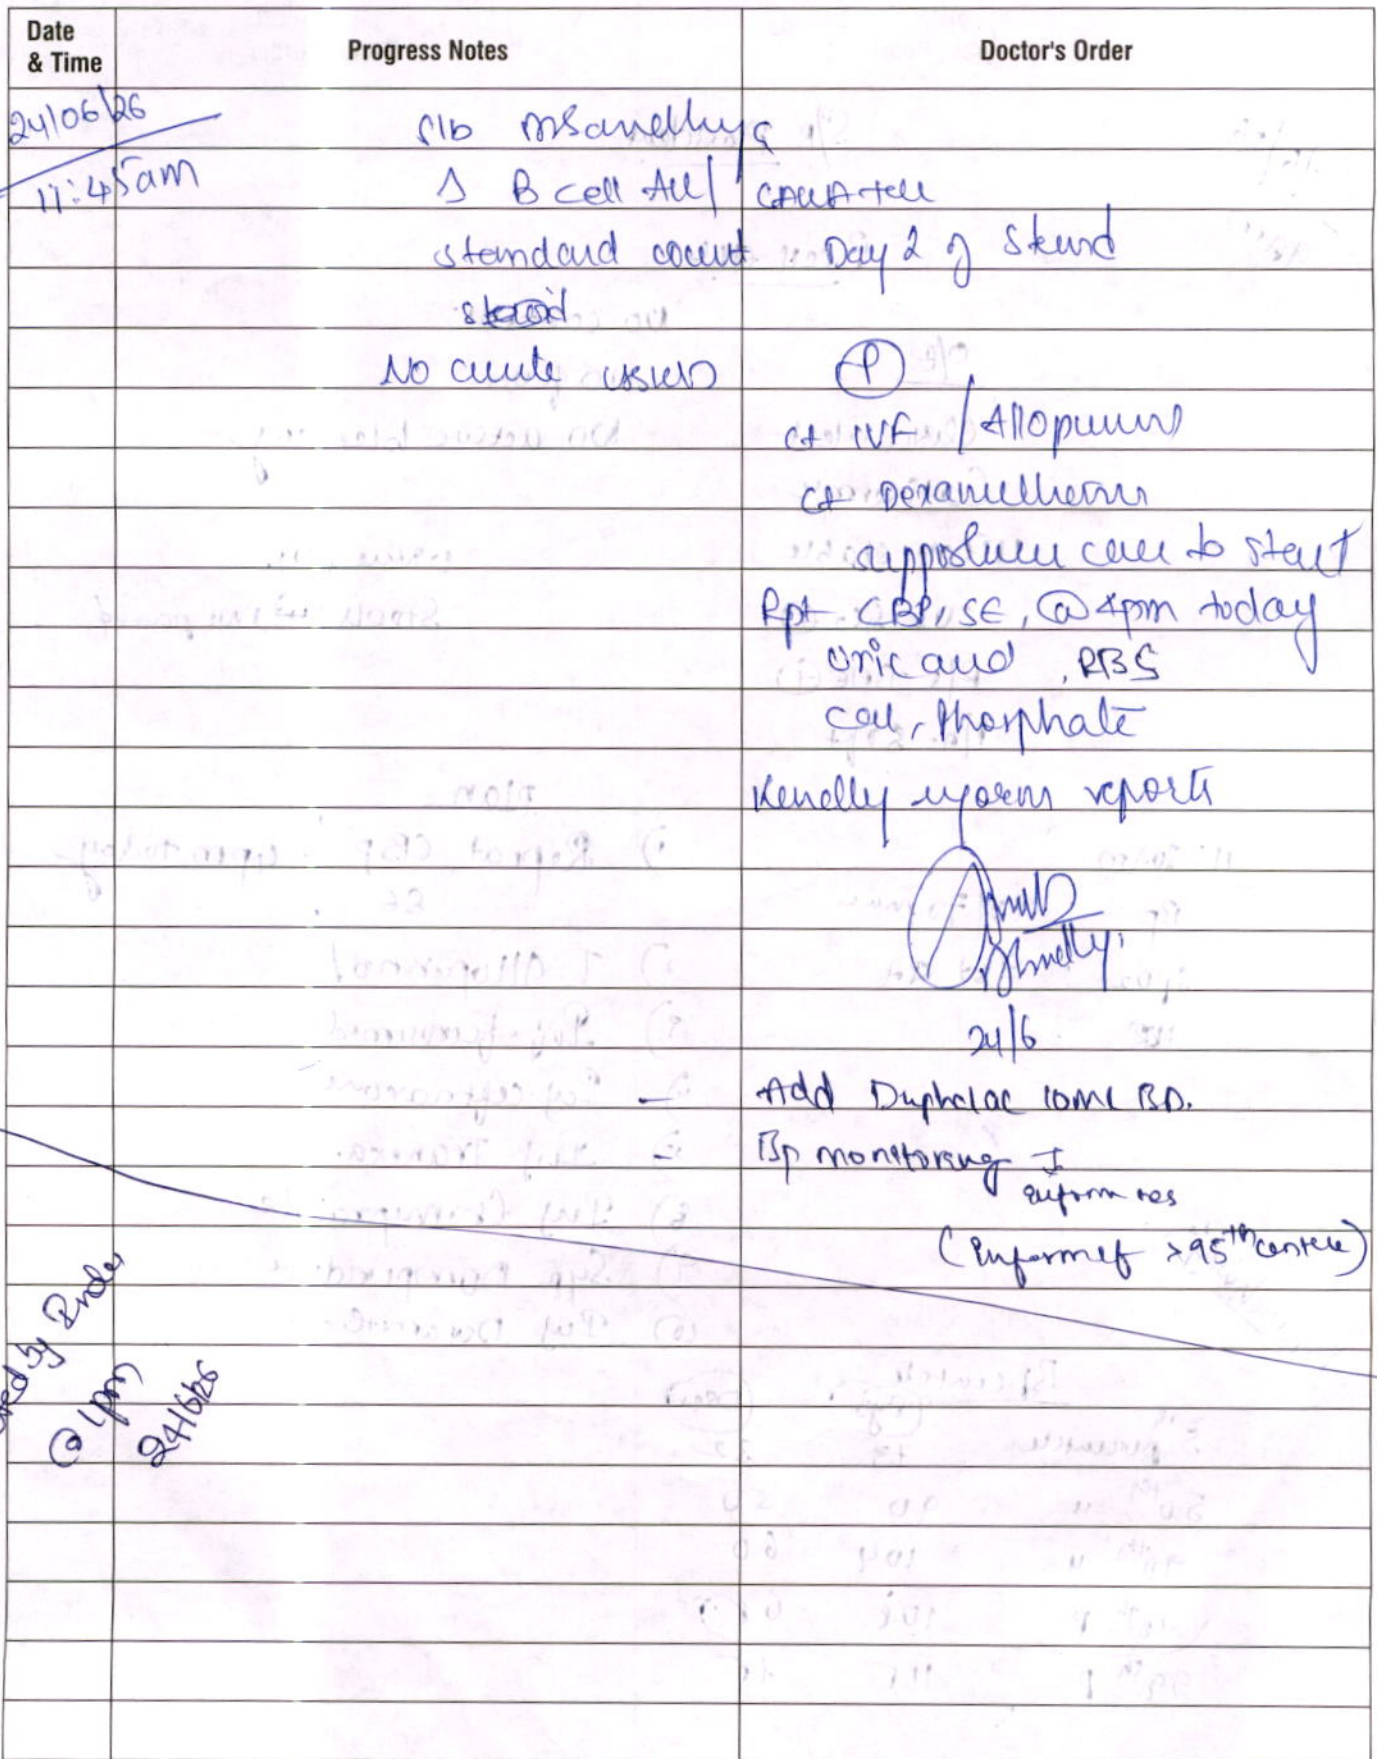 Date & Time
Progress Notes
Doctor's Order
24/06/26
11:45am
S/b Dr Sandhya
Δ B cell ALL / CALLA +ve
standard count Day 2 of steroid
steroid
No acute issues
(P)
Ct IVF / Allopurinol
Ct Dexamethasone
supportive care to start
Rpt CBP, SE, @ 4pm today
uric acid, RBS
Cal, Phosphate
Kindly inform reports
24/6
- Add Duphalac 10ml BD.
Bp monitoring
inform res
(Inform if >95th centile)
by
@ 1pm
24/6/26